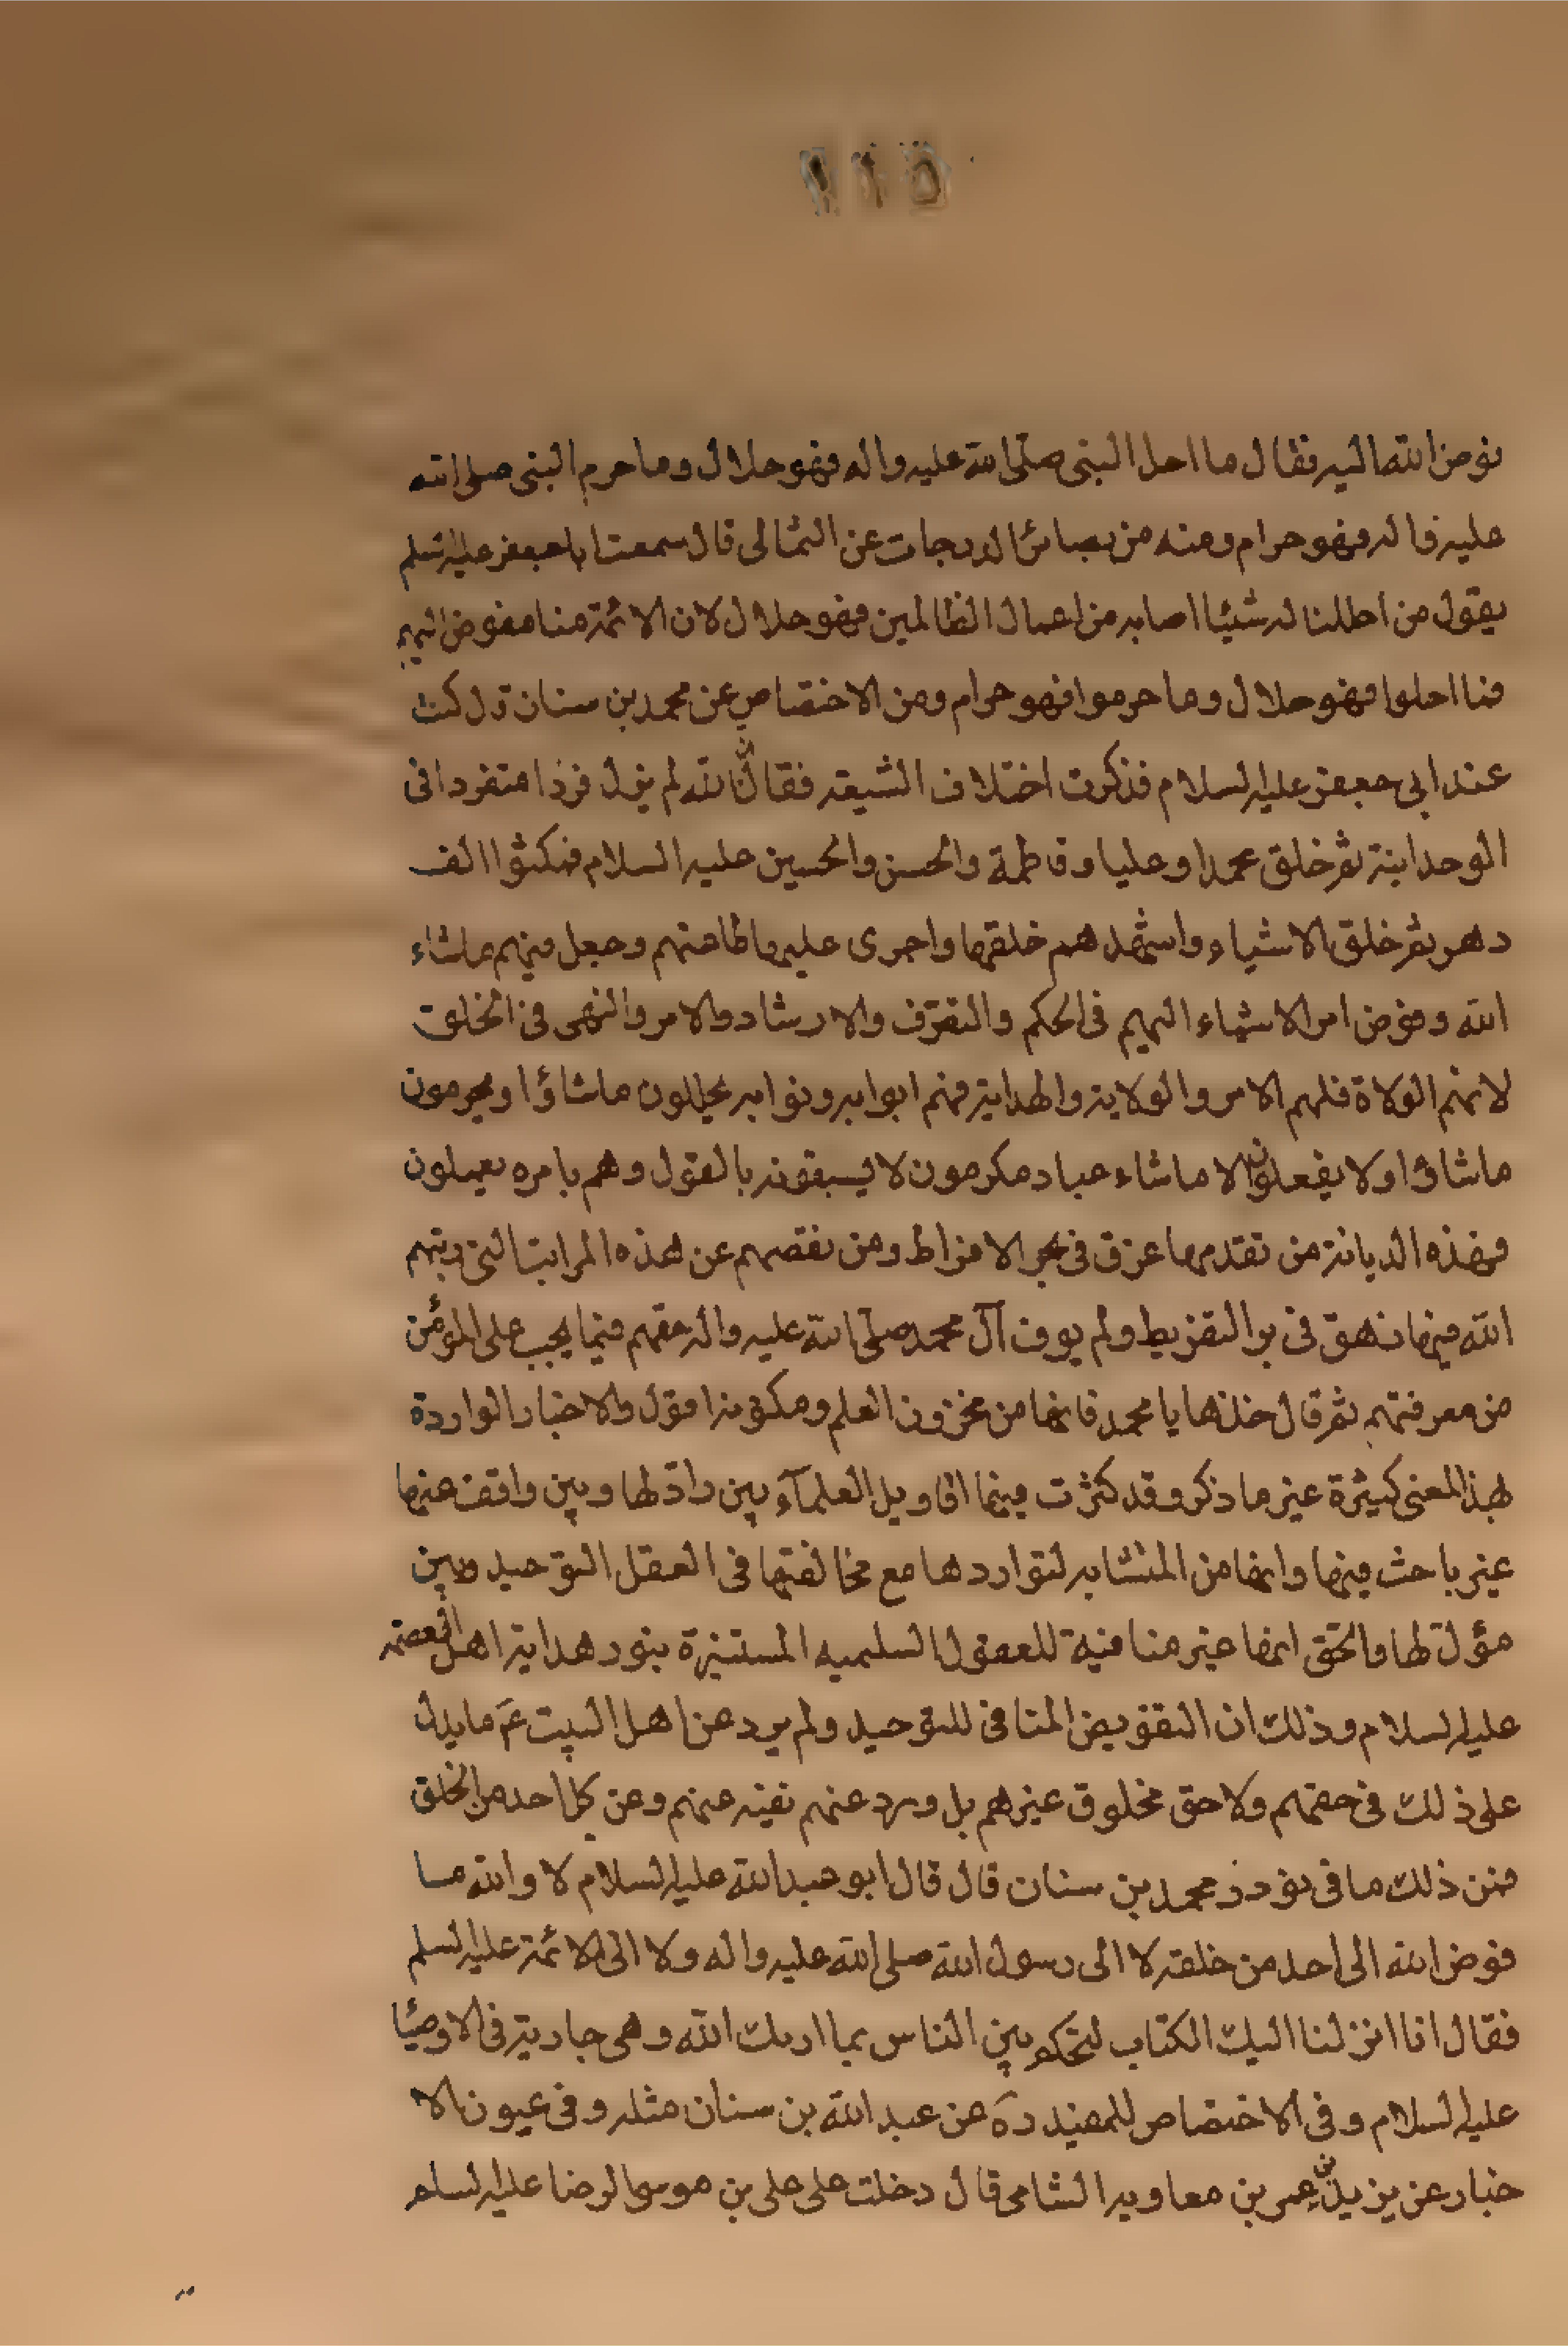 فوض الله اليه فقال ما احل النبى صلّى الله عليه واله فهو حلال وما حرم النبى صلى الله
عليه واله فهو حرام ومنه من بصائر الدرجات عن الثمالى قال سمعت ابا جعفر عليه السلم
يقول من احللنا له شيئا اصابه من اعمال الظالمين فهو حلال لان الائمة منا مفوض اليهم
فما احلوا فهو حلال وما حرموا فهو حرام ومن الاختصاص عن محمد بن سنان قال كنت
عند ابى جعفر عليه السلام فذكرت اختلاف الشيعة فقال ان الله لم يزل فردا متفردا فى
الوحدانية ثم خلق محمدا وعليا وفاطمة والحسن والحسين عليه السلام فمكثوا الف
دهر ثم خلق الاشياء واشهدهم خلقها واجرى عليها طاعتهم وجعل فيهم ماشاء
الله وفوض امر الاشياء اليهم فى الحكم والتصرّف والارشاد والامر والنهى فى الخلق
لانهم الولاة فلهم الامر والولاية والهداية فهم ابوابه ونوابه يحللون ماشاؤا ويحرمون
ماشاؤا ولا يفعلون الا ماشاء عباد مكرمون لا يسبقونه بالقول وهم بامره يعملون
فهذه الديانة من تقدمها غرق فى بحر الافراط ومن نقصهم عن هذه المراتب التى رتبهم
الله فيها زهق فى بر التفريط ولم يوف آل محمد صلّى الله عليه واله حقهم فيما يجب على المؤمن
من معرفتهم ثم قال خذها يا محمد فانها من مخزون العلم ومكنونه اقول والاخبار الواردة
بهذا المعنى كثيرة غير ما ذكر وقد كثرت فيها اقاويل العلمآء بين رادّ لها وبين واقف عنها
غير باحث فيها وانها من المتشابه لتواردها مع مخالفتها فى العقل التوحيد وبين
مؤوّل لها والحق انها غير منافية للعقول السليمه المستنيرة بنور هداية اهل العصمة
عليه السلام وذلك ان التفويض المنافى للتوحيد ولم يرد عن اهل البيت عَ ما يدل
على ذلك فى حقهم ولا حق مخلوق غيرهم بل ورد عنهم نفيه عنهم وعن كل احد من الخلق
فمن ذلك ما فى نوادر محمد بن سنان قال قال ابو عبد الله عليه السلام لا والله ما
فوض الله الى احد من خلقه لا الى رسول الله صلى الله عليه واله ولا الى الائمة عليه السلم
فقال انا انزلنا اليك الكتاب لتحكم بين الناس بما اريك الله وهى جارية فى الاوصيا
عليه السلام وفى الاختصاص للمفيد رهَ عن عبد الله بن سنان مثله وفى عيون الا
خبار عن يزيد بن عمير بن معاويه الشامى قال دخلت على على بن موسى الرضا عليه السلم